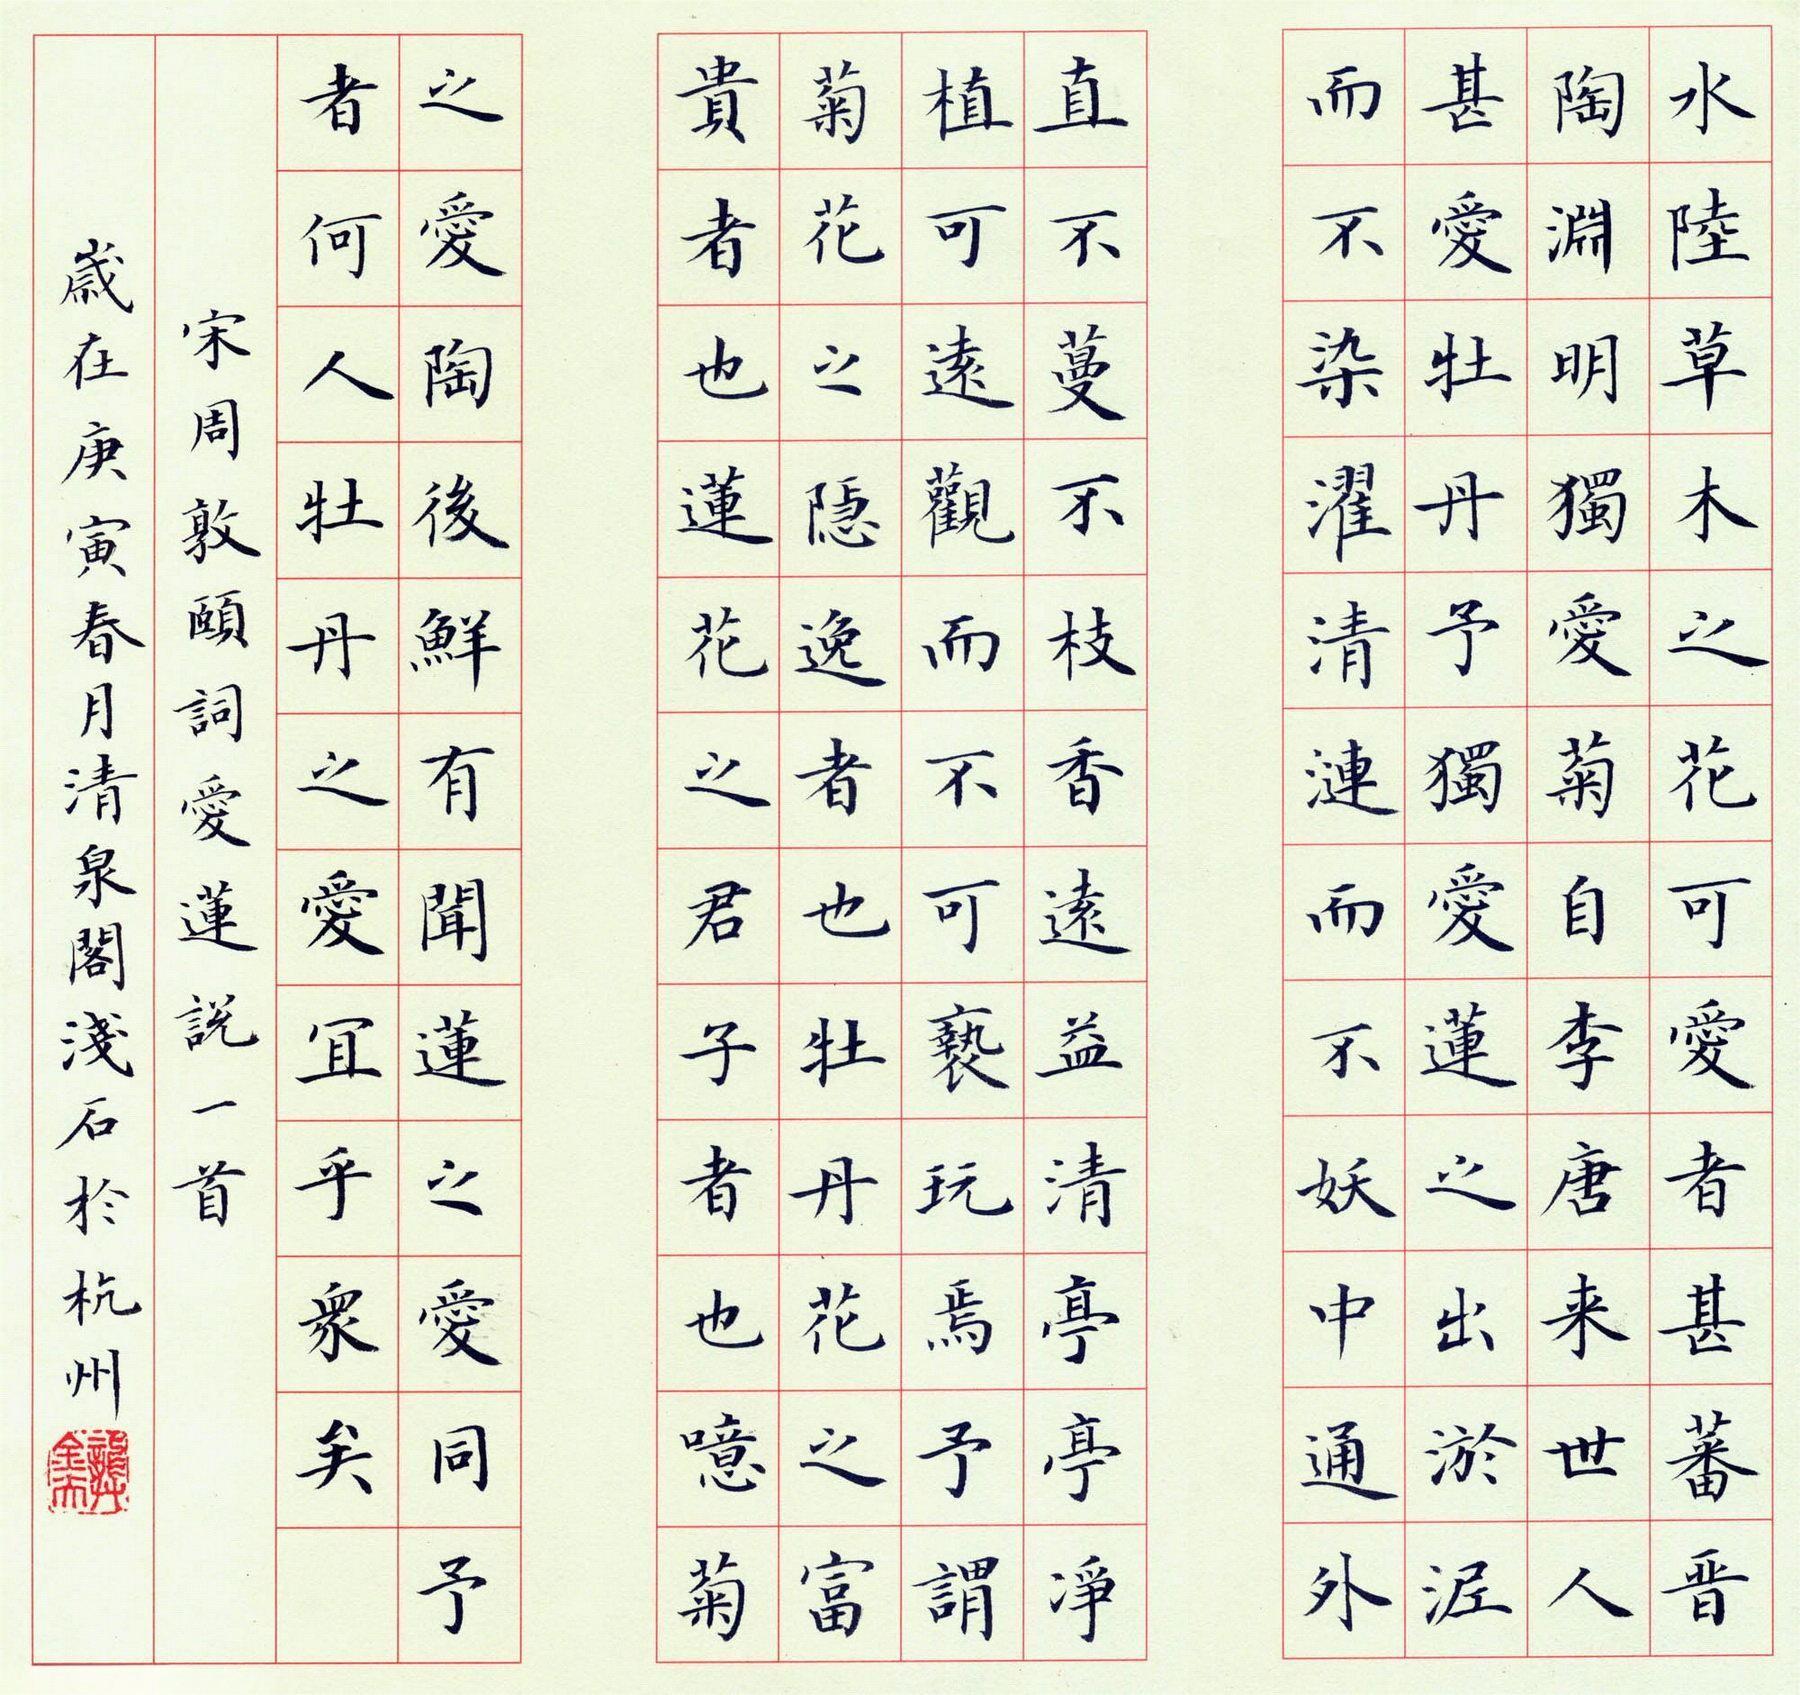 水陸草木之花可愛者甚蕃晋
陶淵明獨愛菊自李唐来世人
甚愛牡丹予獨愛蓮之出淤泥
而不染濯清漣而不妖中通外
直不蔓不枝香遠益清亭亭淨
植可遠觀而不可褻玩焉予謂
菊花之隱逸者也牡丹花之富
貴者也蓮花之君子者也噫菊
之愛陶後鮮有聞蓮之愛同予
者何人牡丹之愛冝乎衆矣
宋周敦頤詞愛蓮説一首
歲在庚寅春月清泉閣淺石於杭州